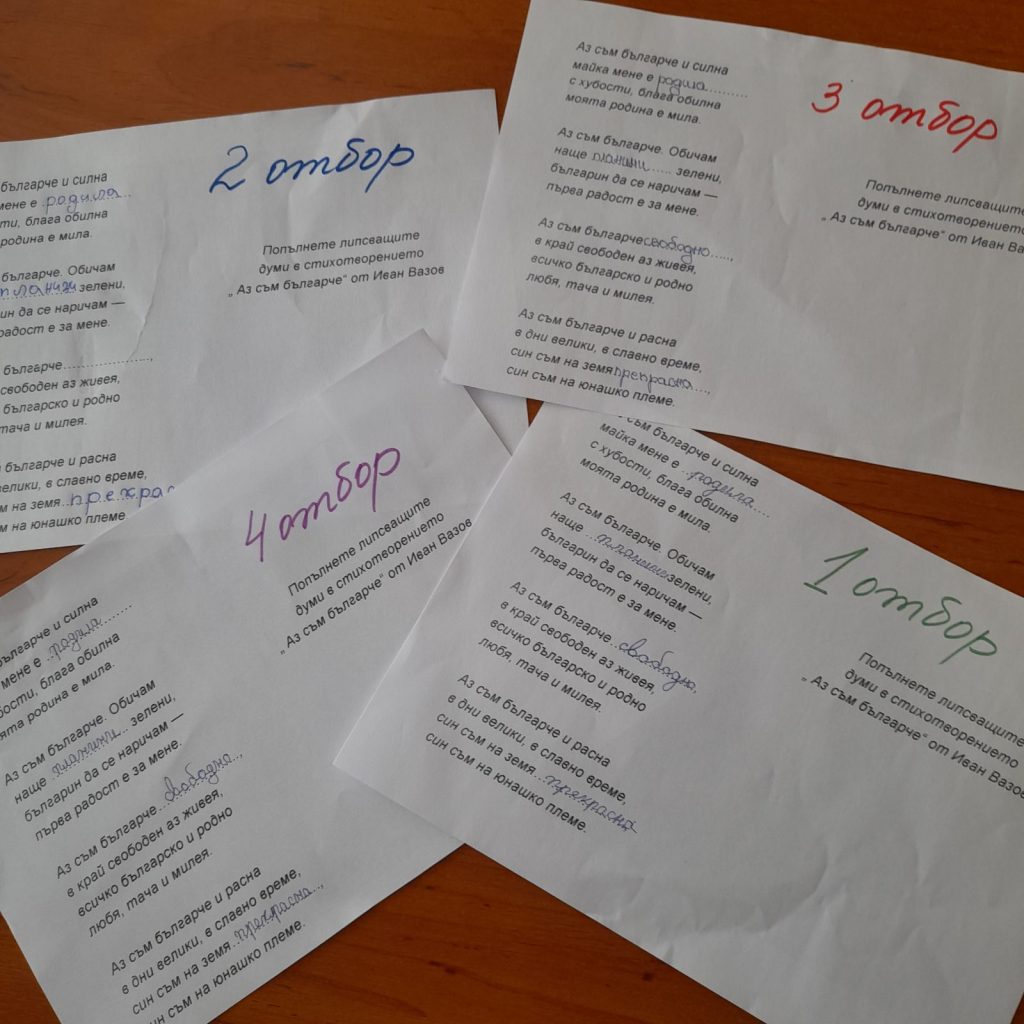 българче и силна
мене е .родила..
ти, блага обилна
родина е мила.
българче. Обичам
зелени,
ин да се наричам —
радост е за мене.
българче....................,
свободен аз живея,
българско и родно
тача и милея.
българче и расна
велики, в славно време,
м на земя..прекрас
м на юнашко племе.
2 отбор
Попълнете липсващите
думи в стихотворението
„ Аз съм българче“ от Иван Вазов
Аз съм българче и силна
майка мене е родила..........
с хубости, блага обилна
моята родина е мила.
Аз съм българче. Обичам
наше планини..... зелени,
българин да се наричам —
първа радост е за мене.
Аз съм българче свободно.....,
в край свободен аз живея,
всичко българско и родно
любя, тача и милея.
Аз съм българче и расна
в дни велики, в славно време,
син съм на земя прекрасна...,
син съм на юнашко племе.
3 отбор
Попълнете липсващите
думи в стихотворението
„ Аз съм българче“ от Иван Ваз
българче и силна
мене е ..родила........
ости, блага обилна
ята родина е мила.
Аз съм българче. Обичам
наше планини... зелени,
българин да се наричам —
първа радост е за мене.
Аз съм българче...свободно..,
в край свободен аз живея,
всичко българско и родно
любя, тача и милея.
Аз съм българче и расна
в дни велики, в славно време,
син съм на земя..прекрасна..,
син съм на юнашко племе.
4 отбор
Попълнете липсващите
думи в стихотворението
„ Аз съм българче“ от Иван Вазов
Аз съм българче и силна
майка мене е ..родила.....
с хубости, блага обилна
моята родина е мила.
Аз съм българче. Обичам
наше ...планини зелени,
българин да се наричам —
първа радост е за мене.
Аз съм българче...свободно,
в край свободен аз живея,
всичко българско и родно
любя, тача и милея.
Аз съм българче и расна
в дни велики, в славно време,
син съм на земя...прекрасна
син съм на юнашко племе.
1 отбор
Попълнете липсващите
думи в стихотворението
„ Аз съм българче“ от Иван Вазов